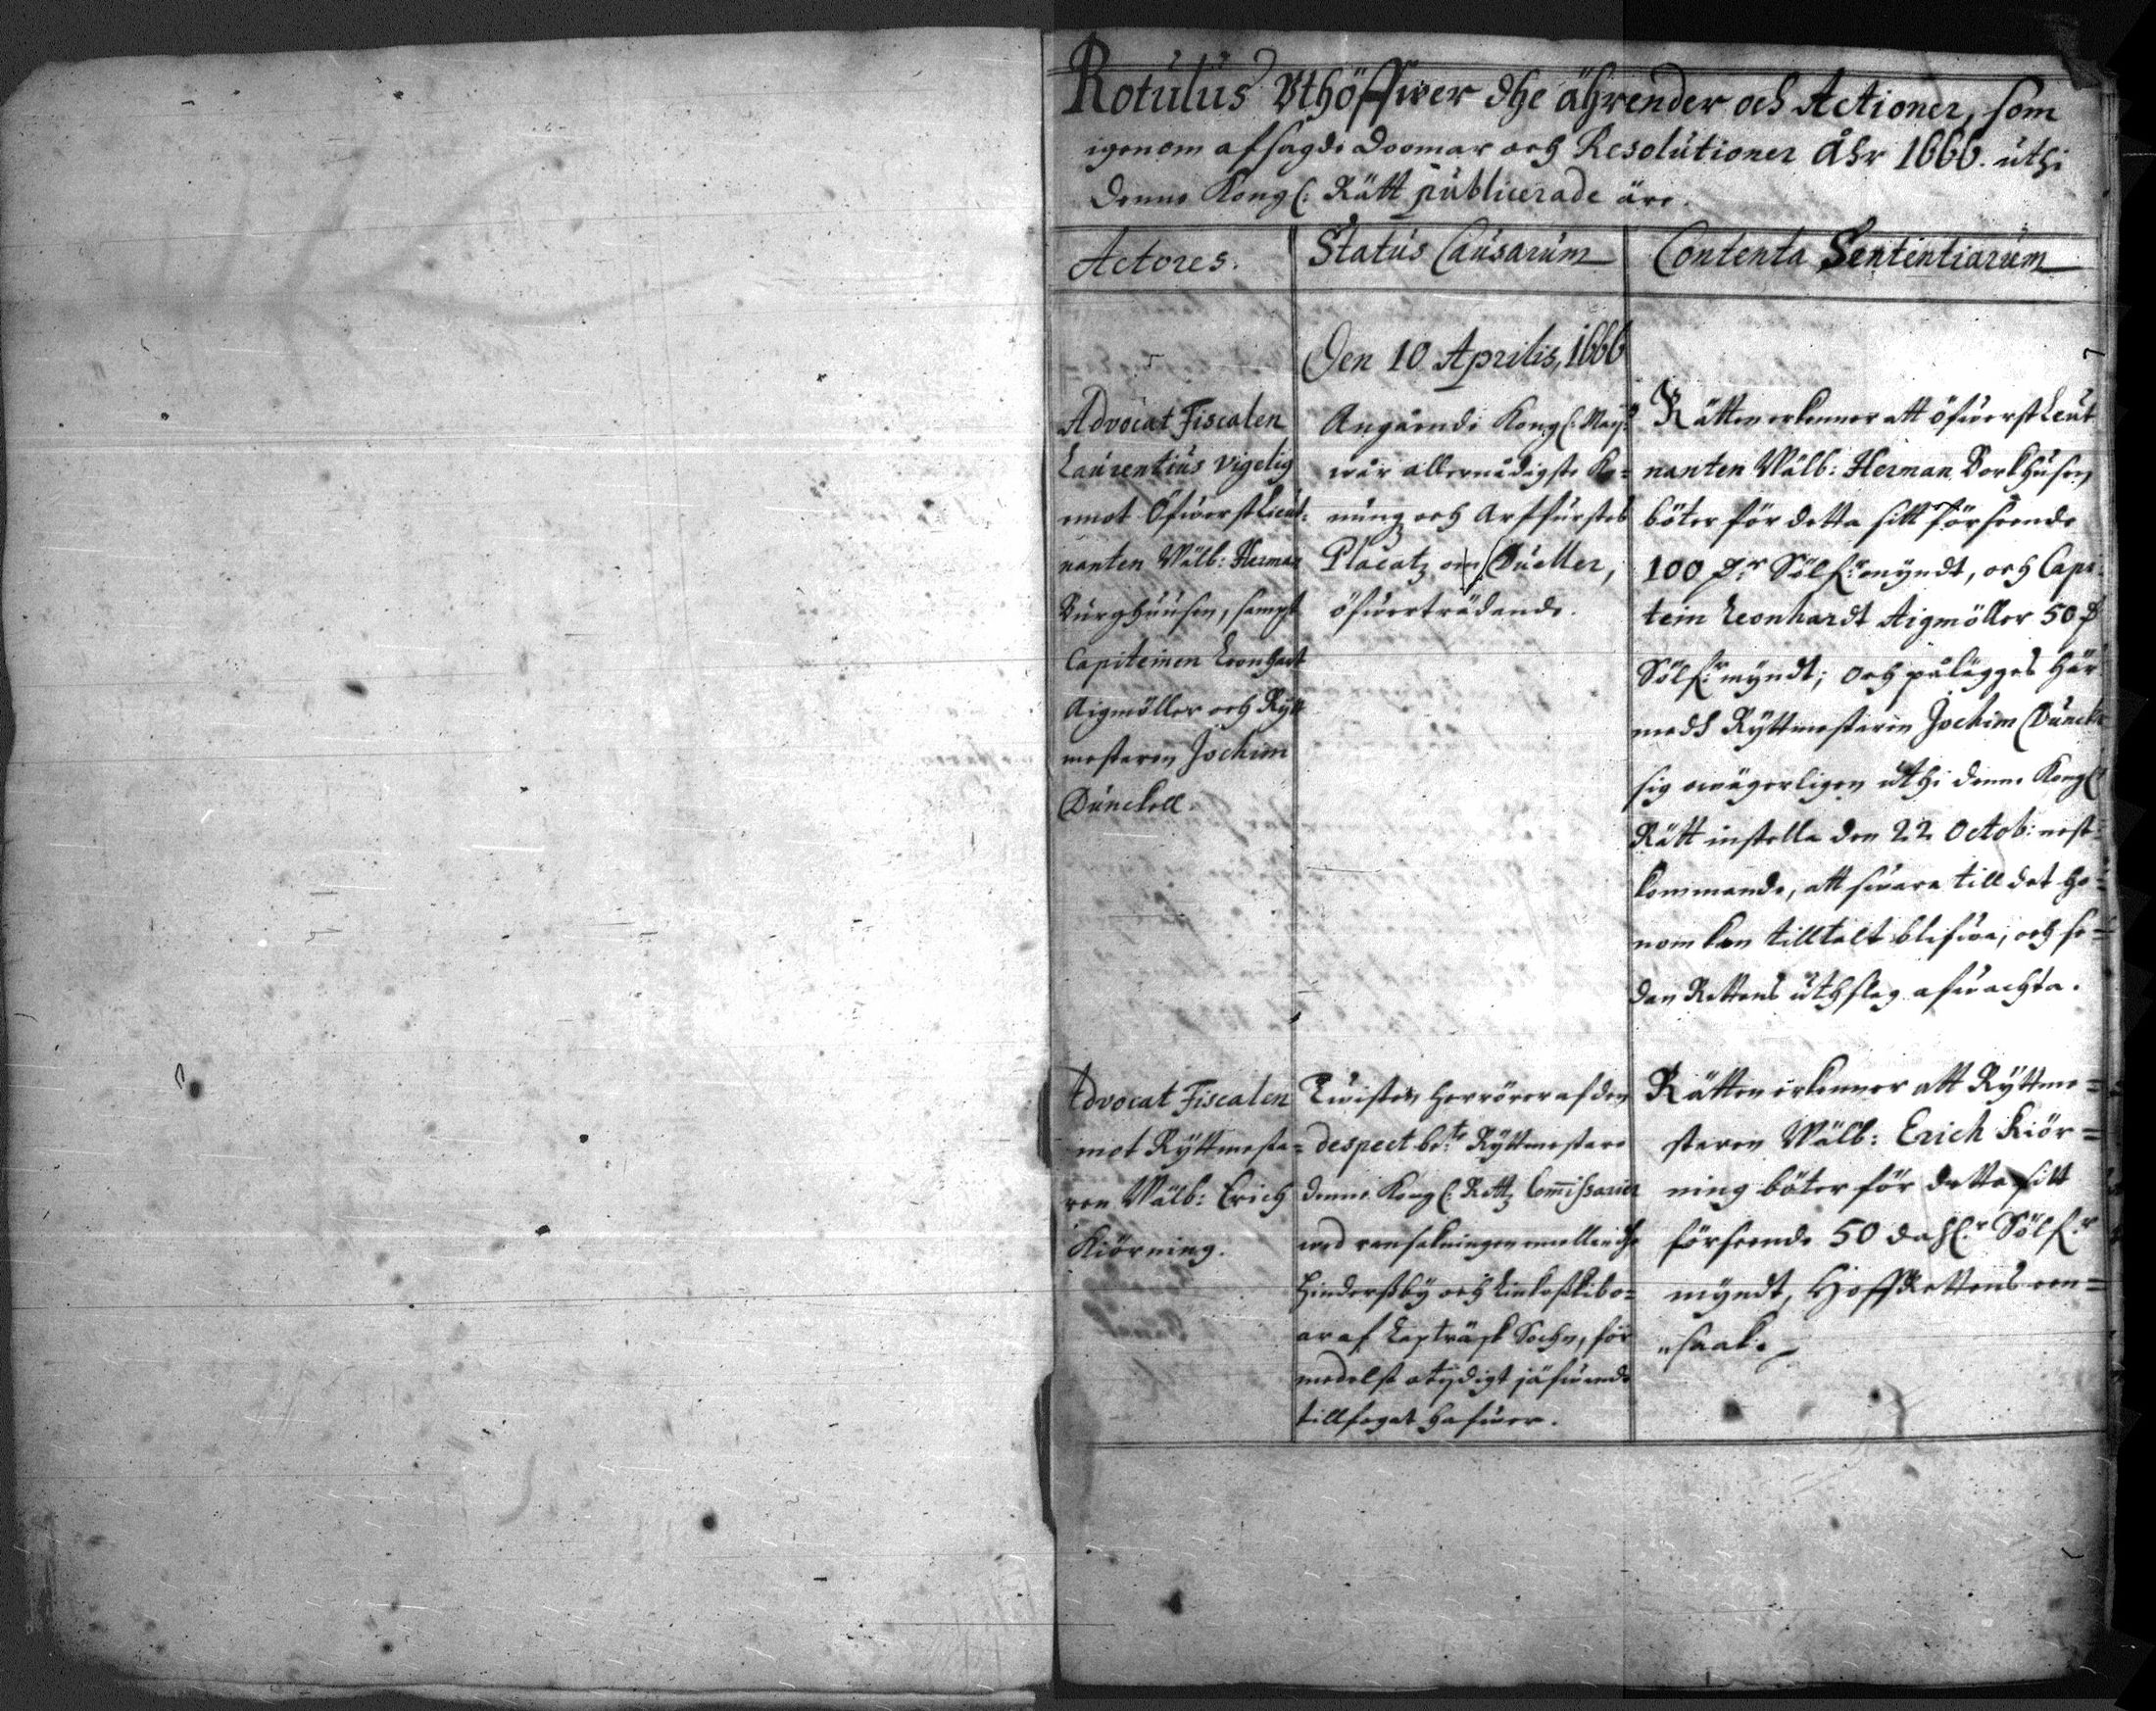 Rotulus Vthöffwer dhe ährender och Actioner, som
igenom afsagde doomar och Resolutioner åhr 1666. uthi
denne Kongl: Rätt publicerade äre.
Actores.
Status Causarum
Contenta Sententiarum
Den 10 Aprilis, 1666
Advocat Fiscalen
Laurentius Vigelig
emot Öfwerst Lieut:
nanten Wälb: Herman
Burghuusen, sampt
Capiteinen Leonhart
Aigmöller och Rytt
mestaren Jochim
Dunckell.
Angående Kongl: Maij:tz
wår allernådigste Ko=
nung och Arffurstes
Placatz om Dueller,
öfwerträdande.
Rätten erkenner att öfwerst Leut
nanten Wälb: Herman Borkhusen
böter för detta sitt förseende
100 d:r Sölf:r mÿndt, och Capi
tein Leonhardt Aigmöller 50 d
Sölf:r mÿndt; och pålägges här
medh Rÿttmestaren Jochim Dunckel
sig owägerligen uthi denne Kongl:
Rätt instella den 22 Octob: nest=
kommande, att swara till det ho=
nom kan tilltalt blifwa, och se=
dan Rettens uthslag afwachta.
Advocat Fiscalen
mot Rÿttmesta=
ren Wälb: Erich
Kiörning.
Twisten herrörer af den
despect be:te Rÿttmestare
denne Kongl: Rettz Commissarier
wed ransakningen emellan dhe
Hinderssbÿ och Linkosskibo=
ar af Lapträsk Sochn, för
medelst otÿdigt jäfwande
tillfogat hafwer.
Rätten erkenner att Rÿttme=
staren Wälb: Erich Kiör=
ning böter för detta sitt
förseende 50 dahl:r Sölf:r
mÿndt, HoffRettens een=
"saak.